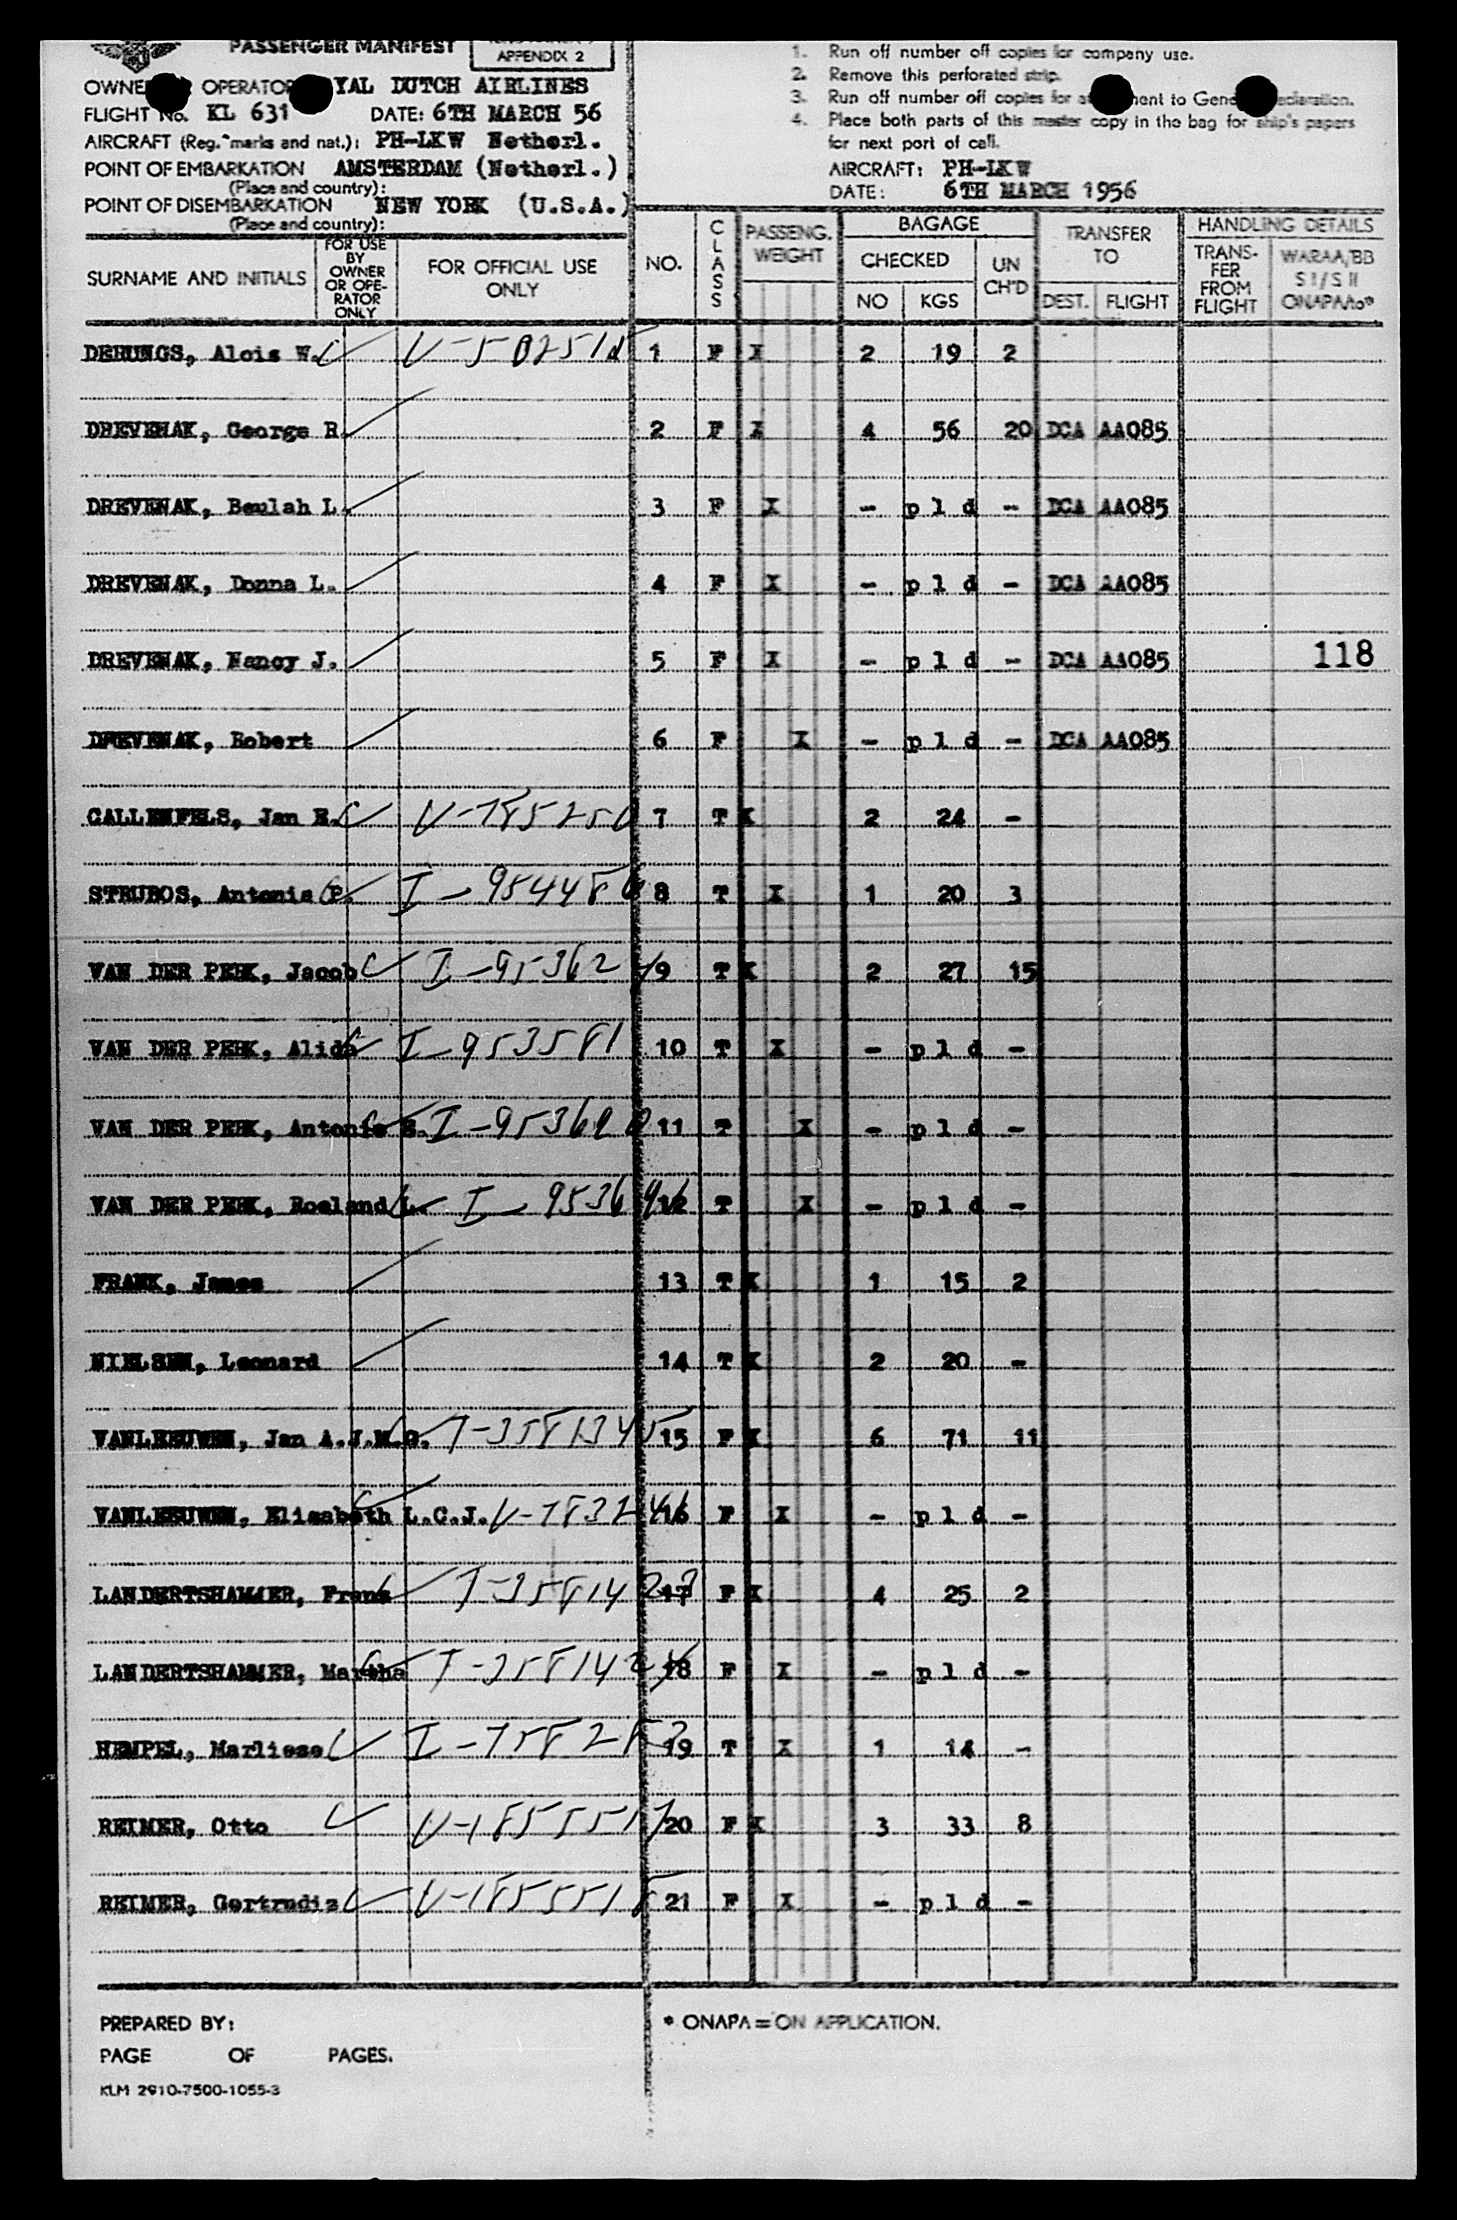 PASSENGER MANIFEST
APPENDIX 2
OWNER OPERATOR YAL DUTCH AIRLINES
FLIGHT No. KL 631 DATE: 6TH MARCH 56
AIRCRAFT (Reg. marks and nat.): PH-LKW Netherl.
POINT OF EMBARKATION AMSTERDAM (Netherl.)
(Place and country):
POINT OF DISEMBARKATION NEW YORK (U.S.A.)
(Place and country):
1. Run off number off copies for company use.
2. Remove this perforated strip.
3. Run off number off copies for to General Declaration.
4. Place both parts of this master copy in the bag for ship's papers
for next port of call.
AIRCRAFT: PH-LKW
DATE: 6TH MARCH 1956
SURNAME AND INITIALS
FOR USE
BY
OWNER
OR OPE-
RATOR
ONLY
FOR OFFICIAL USE
ONLY
NO.
CLASS
PASSENG.
WEIGHT
BAGAGE
CHECKED
NO KGS
UN
CH'D
TRANSFER
TO
DEST. FLIGHT
HANDLING DETAILS
TRANS-
FER
FROM
FLIGHT
WARAA/BB
S I / S II
ONAPAAo*
Alois W. 1 F X 2 19 2
DREVENAK, George R 2 F X 4 56 20 DCA AA085
DREVENAK, Beulah L. 3 F X - pld - DCA AA085
DREVENAK, Donna L. 4 F X - pld - DCA AA085
DREVENAK, Nancy J. 5 F X - pld - DCA AA085 118
DREVENAK, Robert 6 F X - pld - DCA AA085
CALLENFELS, Jan E. V-785250 7 T X 2 24 -
STRUBOS, Antonia P. I-954486 8 T X 1 20 3
VAN DER PERK, Jacob I-95362 9 T X 2 27 15
VAN DER PERK, Alida I-953581 10 T X - pld -
VAN DER PERK, Antonia 11 T X - pld -
VAN DER PERK, Roeland L. I-9536 12 T X - pld -
FRANK, James 13 T X 1 15 2
NIELSEN, Leonard 14 T X 2 20 -
VANLEEUWEN, Jan A.J.M.G. T-3581345 15 F X 6 71 11
VANLEEUWEN, Elisabeth L.C.J. V-7832 16 F X - pld -
LANDERTSHAMMER, Franz T-3581423 17 F X 4 25 2
LANDERTSHAMMER, Martha T-3581424 18 F X - pld -
HEMPEL, Marliese I-758283 19 T X 1 14 -
REIMER, Otto V-1855517 20 F X 3 33 8
REIMER, Gertrudis V-1855518 21 F X - pld -
PREPARED BY:
PAGE OF PAGES.
KLM 2910-7500-1055-3
* ONAPA = ON APPLICATION.